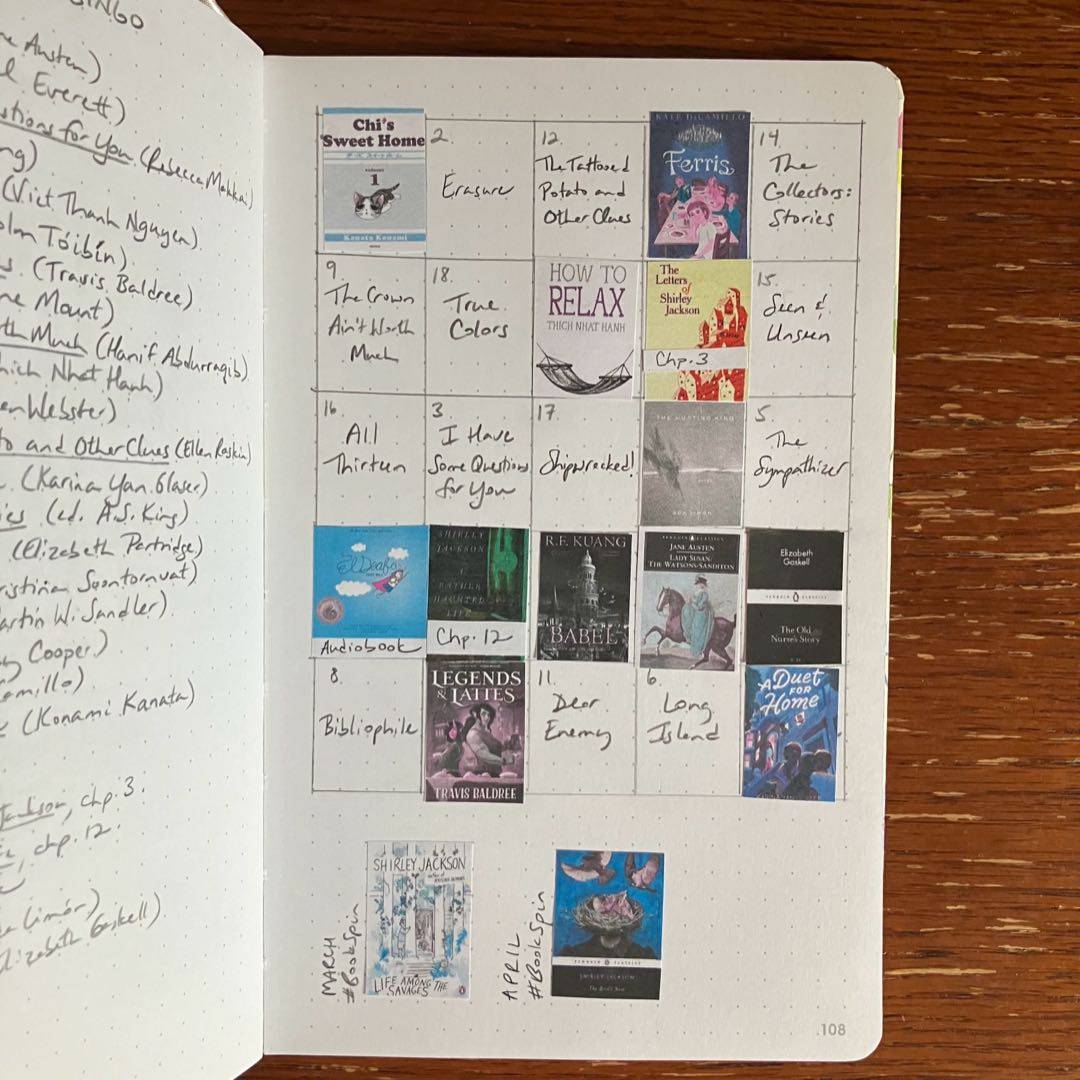 BINGO
ne Austen)
l Everett)
stions for You (Rebecca Makkai)
ng)
(Viet Thanh Nguyen)
olm Tóibín)
s (Travis Baldree)
ne Mount)
rth Much (Hanif Abdurraqib)
hich Nhat Hanh)
en Webster)
o and Other Clues (Ellen Raskin)
(Karina Yan Glaser)
ies (ed. A.S. King)
(Elizabeth Partridge)
ristina Soontornvat)
artin W. Sandler)
Cooper)
amillo)
(Konami Kanata)
Jackson, chp. 3.
chp. 12.
Limón)
lizabeth Gaskell)
Chi's
Sweet Home
volume
1
Konami Kanata
2
Erasure
12.
The Tattooed
Potato and
Other Clues
KATE DiCAMILLO
Ferris
14.
The
Collectors:
Stories
9
The Crown
Ain't Worth
Much
18.
True
Colors
HOW TO
RELAX
THICH NHAT HANH
The
Letters
of
Shirley
Jackson
Chp. 3
15.
Seen &
Unseen
16
All
Thirteen
3.
I Have
Some Questions
for You
17.
Shipwrecked!
THE HURTING KIND
ADA LIMÓN
5.
The
Sympathizer
El Deafo
Audiobook
SHIRLEY
JACKSON
A
RATHER
HAUNTED
LIFE
Chp. 12
R.F. KUANG
BABEL
PENGUIN CLASSICS
JANE AUSTEN
LADY SUSAN,
THE WATSONS, SANDITON
Elizabeth
Gaskell
PENGUIN CLASSICS
The Old
Nurse's Story
8.
Bibliophile
LEGENDS
& LATTES
TRAVIS BALDREE
11.
Dear
Enemy
6.
Long
Island
A DUET
FOR
Home
SHIRLEY JACKSON
LIFE AMONG THE
SAVAGES
MARCH
#BookSpin
APRIL
#BookSpin
PENGUIN CLASSICS
SHIRLEY JACKSON
The Bird's Nest
108